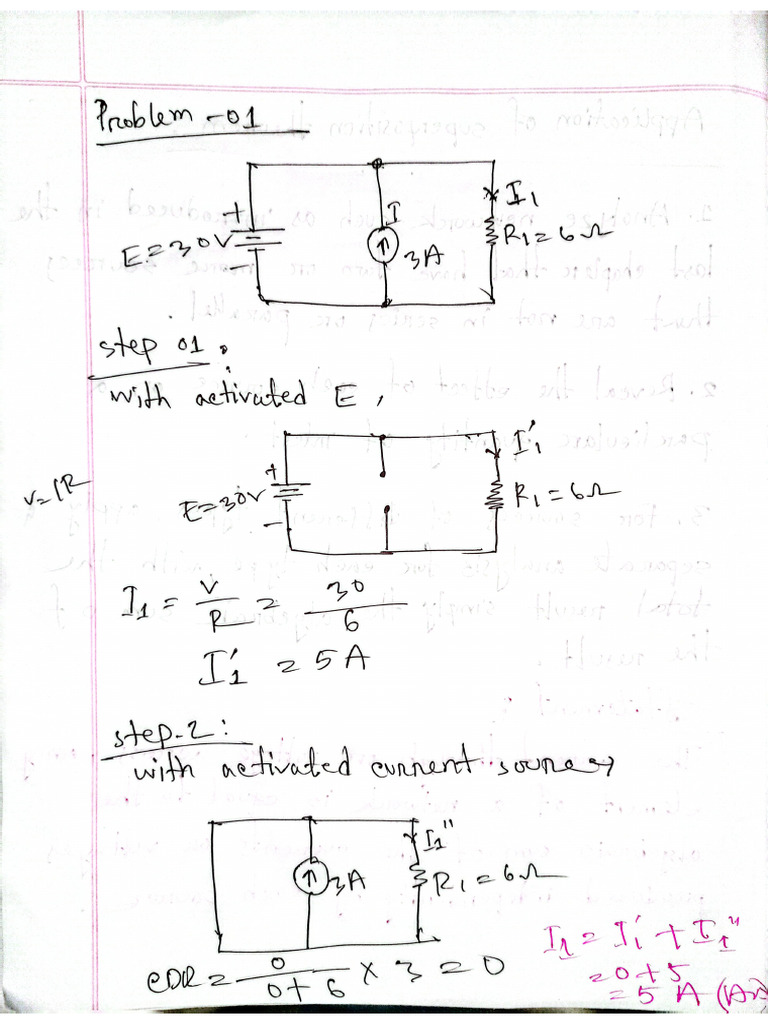 Problem - 01
I
I1
E = 30V
+
-
3A
R1 = 6Ω
step 01 :
with activated E ,
I1'
V = IR
+
E = 30V
-
R1 = 6Ω
I1 = V/R = 30/6
I1' = 5 A
step-2 :
with activated current source →
I1''
3A
R1 = 6Ω
CDR = 0/(0+6) × 3 = 0
I1 = I1' + I1''
= 0+5
= 5 A (An)